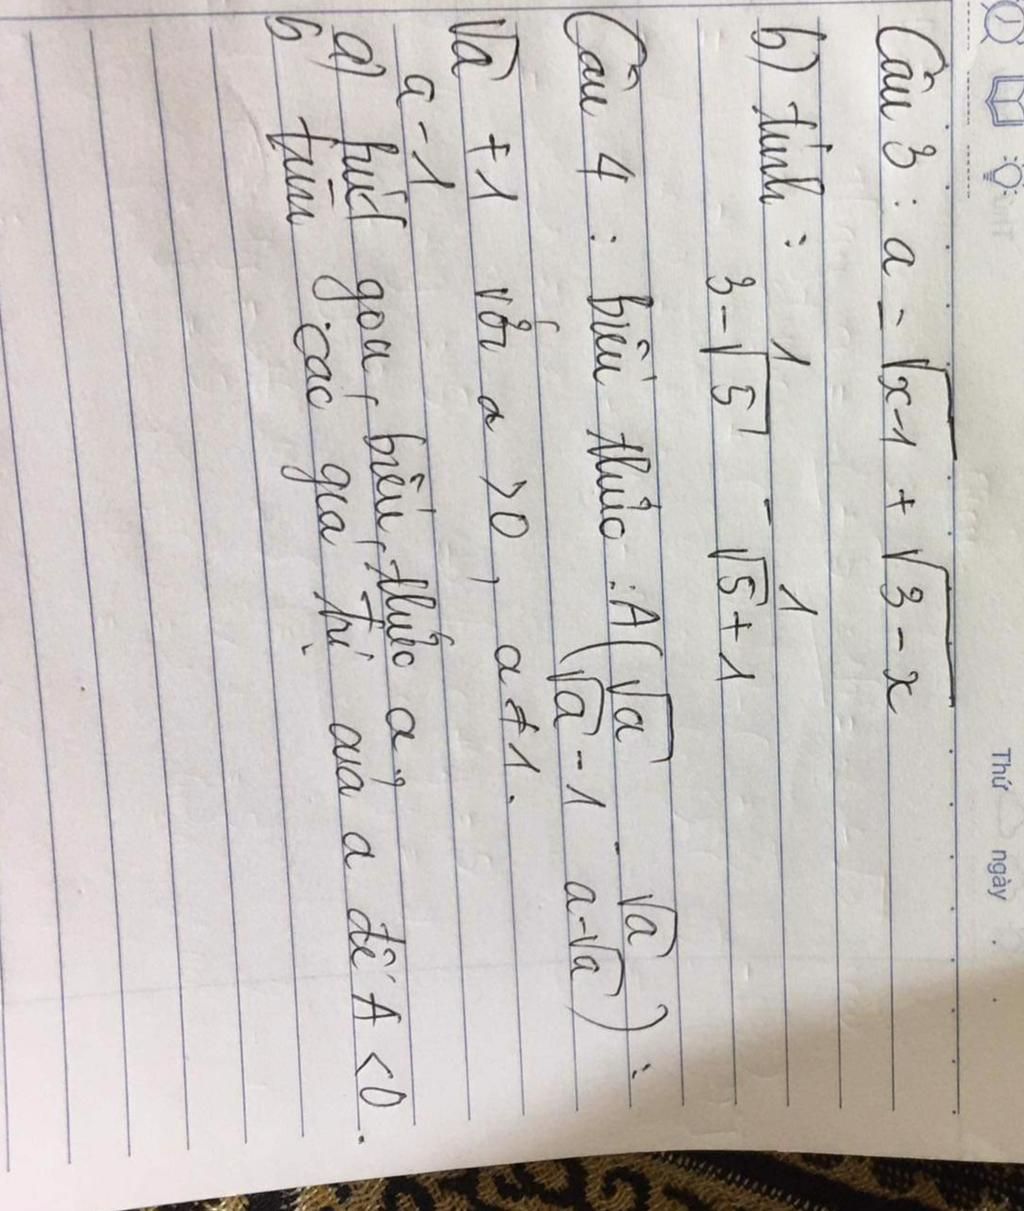 Thứ ngày
Câu 3 : a = √x-1 + √3-x
b) tính : 1/(3-√5) - 1/(√5+1)
Câu 4 : biểu thức : A (√a/(√a-1) - √a/(a-√a)) :
(√a+1)/(a-1) với a >0, a≠1.
a) rút gọn biểu thức a?
b tìm các giá trị của a để A <0.